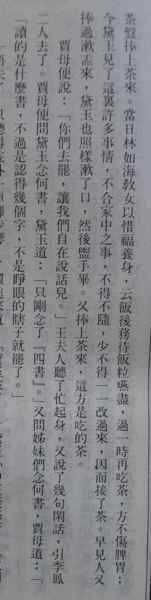 茶盤捧上茶來。當日林如海教女以惜福養身，云飯後務待飯粒嚥盡，過一時再吃茶，方不傷脾胃；
今黛玉見了這裏許多事情，不合家中之事，不得不隨，少不得一一改過來，因而接了茶。早見人又
捧過漱盂來，黛玉也照樣漱了口。然後盥手畢。又捧上茶來，這方是吃的茶。
賈母便說：「你們去罷，讓我們自在說話兒。」王夫人聽了忙起身，又說了幾句閑話，引李鳳
二人去了。賈母便問黛玉念何書，黛玉道：「只剛念了『四書』。」又問姊妹們念何書，賈母道：「
「讀的是什麼書，不過是認得幾個字，不是睜眼的瞎子就罷了。」